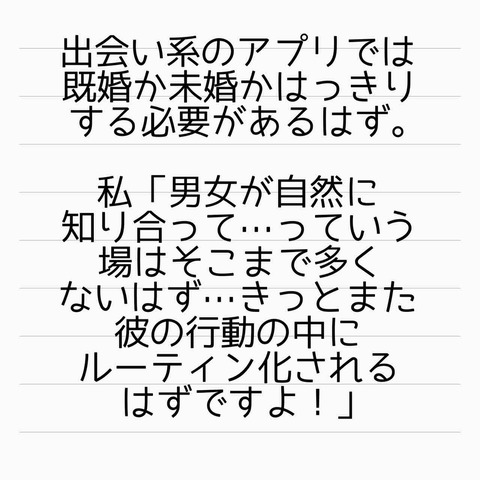 出会い系のアプリでは
既婚か未婚かはっきり
する必要があるはず。
私「男女が自然に
知り合って…っていう
場はそこまで多く
ないはず…きっとまた
彼の行動の中に
ルーティン化される
はずですよ！」